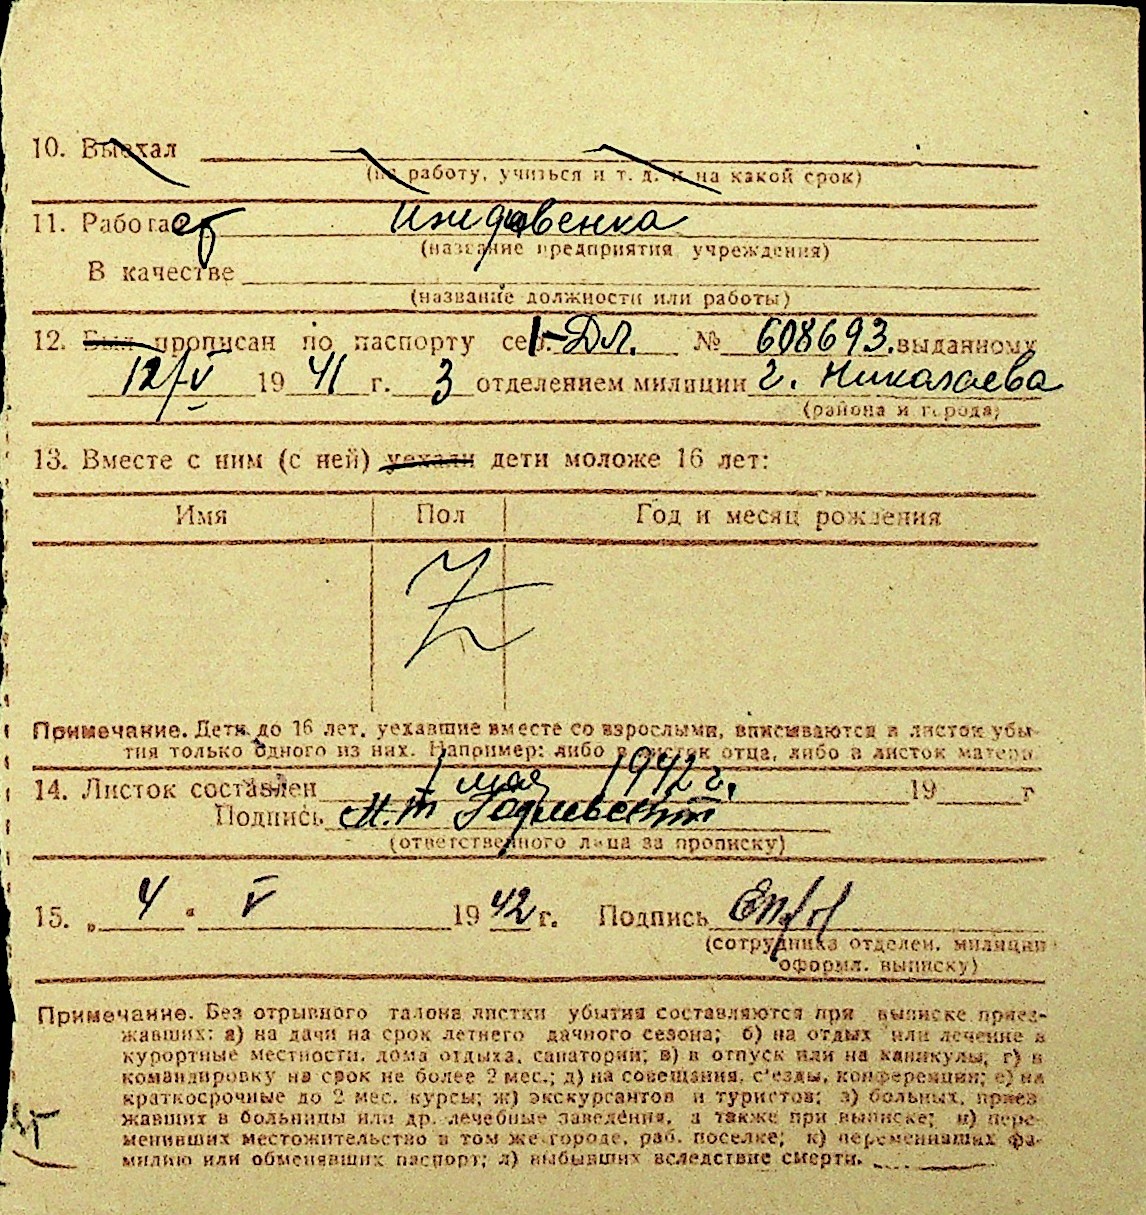 10. Выехал
(на работу, учиться и т. д. и на какой срок)
11. Работает Иждивенка
(название предприятия учреждения)
В качестве
(название должности или работы)
12. Был прописан по паспорту сер. 1-ДЛ. № 608693. выданному
12/V 19 41 г. 3 отделением милиции г. Николаева
(района и города)
13. Вместе с ним (с ней) уехали дети моложе 16 лет:
Имя Пол Год и месяц рождения
Z
Примечание. Дети до 16 лет, уехавшие вместе со взрослыми, вписываются в листок убы-
тия только одного из них. Например: либо в листок отца, либо в листок матери.
14. Листок составлен 1 мая 1942 г. 19 г
Подпись
(ответственного лица за прописку)
15. „ 4 " V 19 42 г. Подпись
(сотрудника отделен. милиции
оформл. выписку)
Примечание. Без отрывного талона листки убытия составляются при выписке приез-
жавших: а) на дачи на срок летнего дачного сезона; б) на отдых или лечение в
курортные местности, дома отдыха, санатории; в) в отпуск или на каникулы; г) в
командировку на срок не более 2 мес.; д) на совещания, с'езды, конференции; е) на
краткосрочные до 2 мес. курсы; ж) экскурсантов и туристов; з) больных, приез
жавших в больницы или др. лечебные заведения, а также при выписке; и) пере-
менивших местожительство в том же городе, раб. поселке; к) переменивших фа-
милию или обменявших паспорт; л) выбывших вследствие смерти.